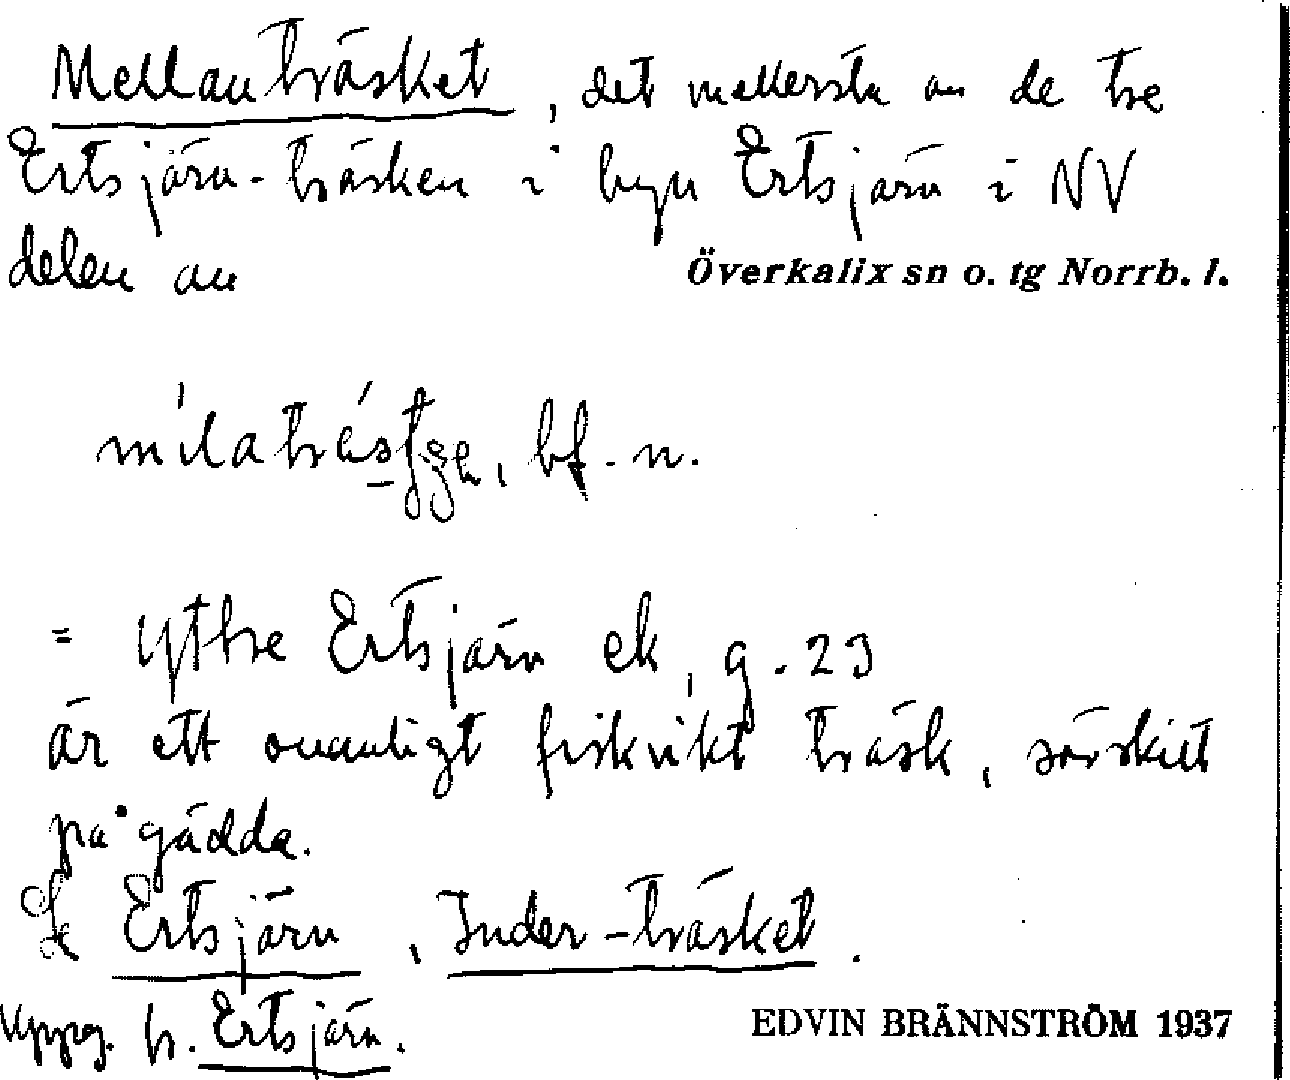 Mellanträsket, det mellersta av de tre
Ertsjärv-träsken i byn Ertsjärv i NV
delen av Överkalix sn o. tg Norrb. l.
bf. n.
= yttre Ertsjärv ek, g. 23
är ett ovanligt fiskrikt träsk, särskilt
på gädda.
Se Ertsjärv, Inder-träsket.
Uppg. fr. Ertsjärv. EDVIN BRÄNNSTRÖM 1937